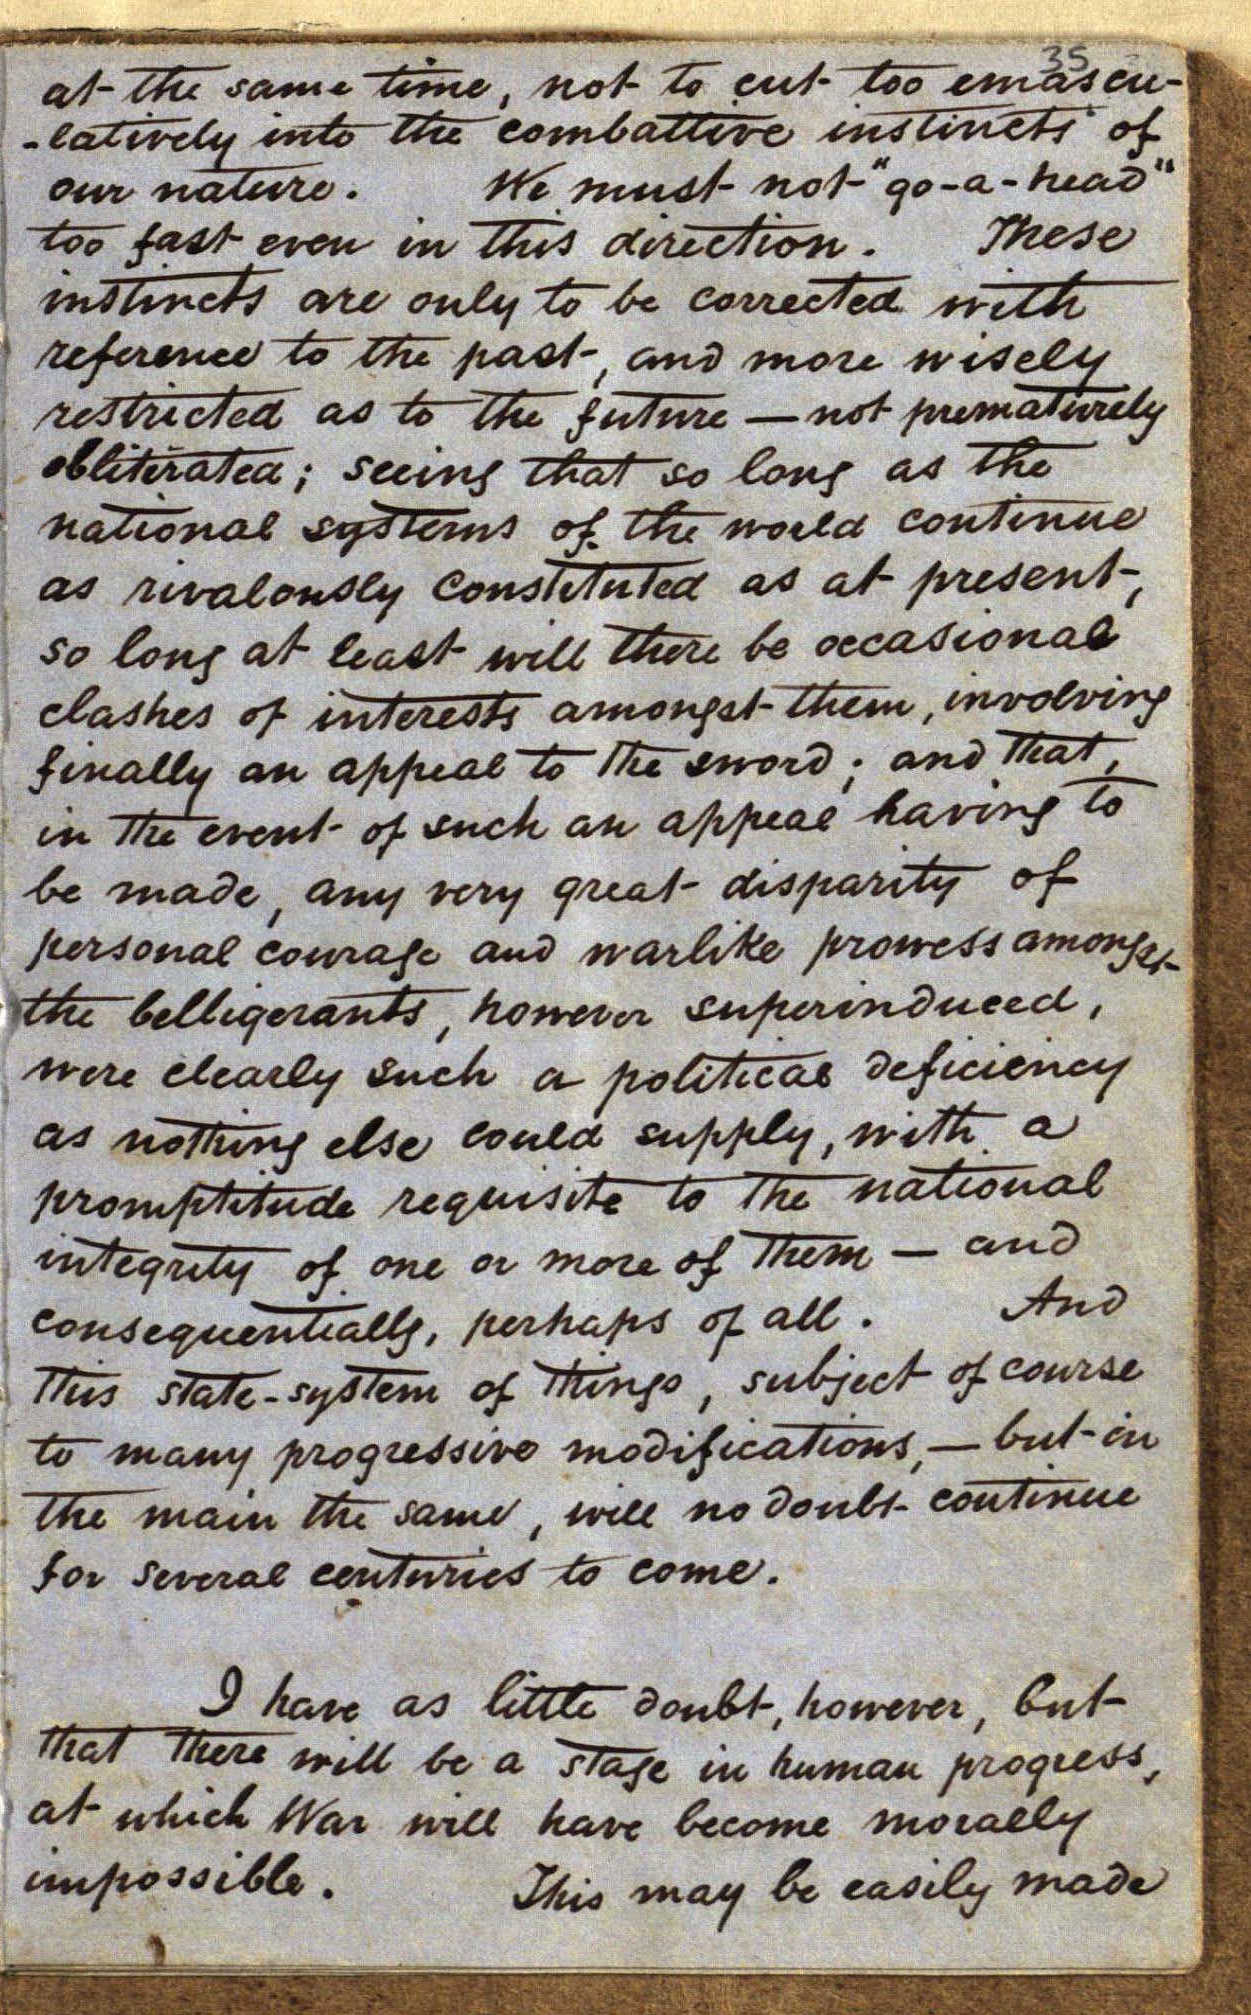 35
at the same time, not to cut too emascu-
-latively into the combattive instincts of
our nature. We must not "go-a-head"
too fast even in this direction. These
instincts are only to be corrected with
reference to the past, and more wisely
restricted as to the future — not prematurely
obliterated; seeing that so long as the
national systems of the world continue
as rivalously constituted as at present,
so long at least will there be occasional
clashes of interests amongst them, involving
finally an appeal to the sword; and that,
in the event of such an appeal having to
be made, any very great disparity of
personal courage and warlike prowess amongst
the belligerants, however superinduced,
were clearly such a political deficiency
as nothing else could supply, with a
promptitude requisite to the national
integrity of one or more of them — and
consequentially, perhaps of all. And
this state-system of things, subject of course
to many progressive modifications, — but in
the main the same, will no doubt continue
for several centuries to come.
I have as little doubt, however, but
that there will be a stage in human progress,
at which War will have become morally
impossible. This may be easily made